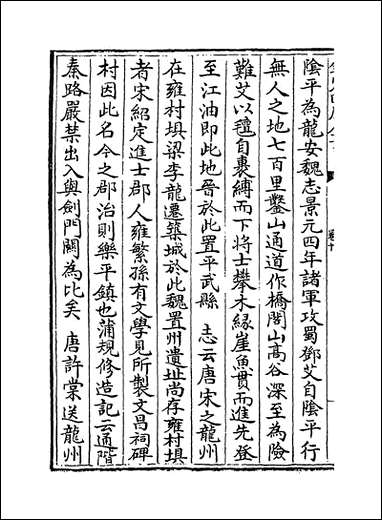 陰平為龍安魏志景元四年諸軍攻蜀鄧艾自陰平行
無人之地七百里鑿山通道作橋閣山髙谷深至為險
難艾以氊自裹縛而下將士攀木緣崖魚貫而進先登
至江油即此地晉於此置平武縣 志云唐宋之龍州
在雍村埧梁李龍遷築城於此魏置州遺址尚存雍村埧
者宋紹定進士郡人雍繁孫有文學見所製文昌祠碑
村因此名今之郡治則樂平鎮也蒲規修造記云通階
秦路嚴禁出入與劍門關為比矣 唐許棠送龍州